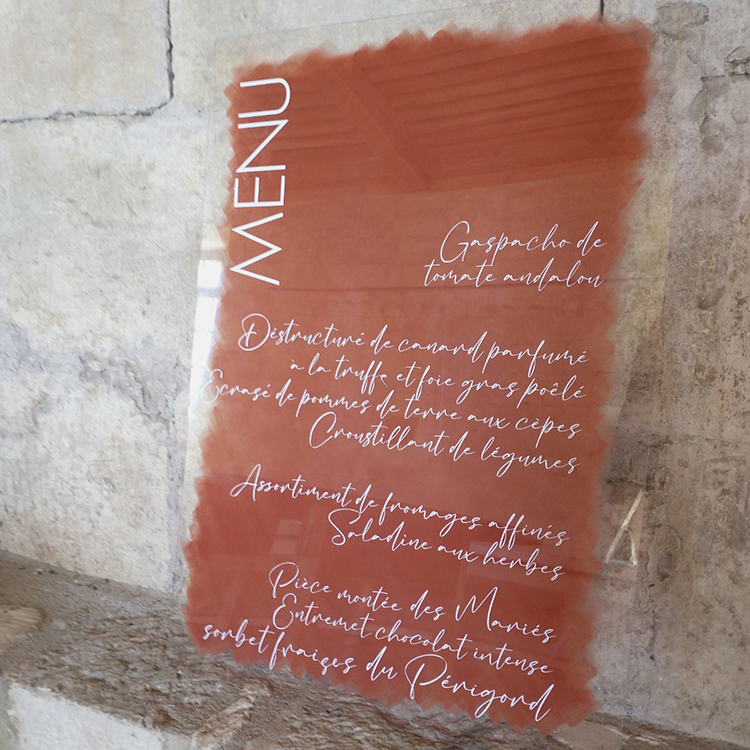 MENU
Gaspacho de
tomate andalou
Déstructuré de canard parfumé
à la truffe et foie gras poêlé
Écrasé de pommes de terre aux cèpes
Croustillant de légumes
Assortiment de fromages affinés
Saladine aux herbes
Pièce montée des Mariés
Entremet chocolat intense
sorbet fraises du Périgord